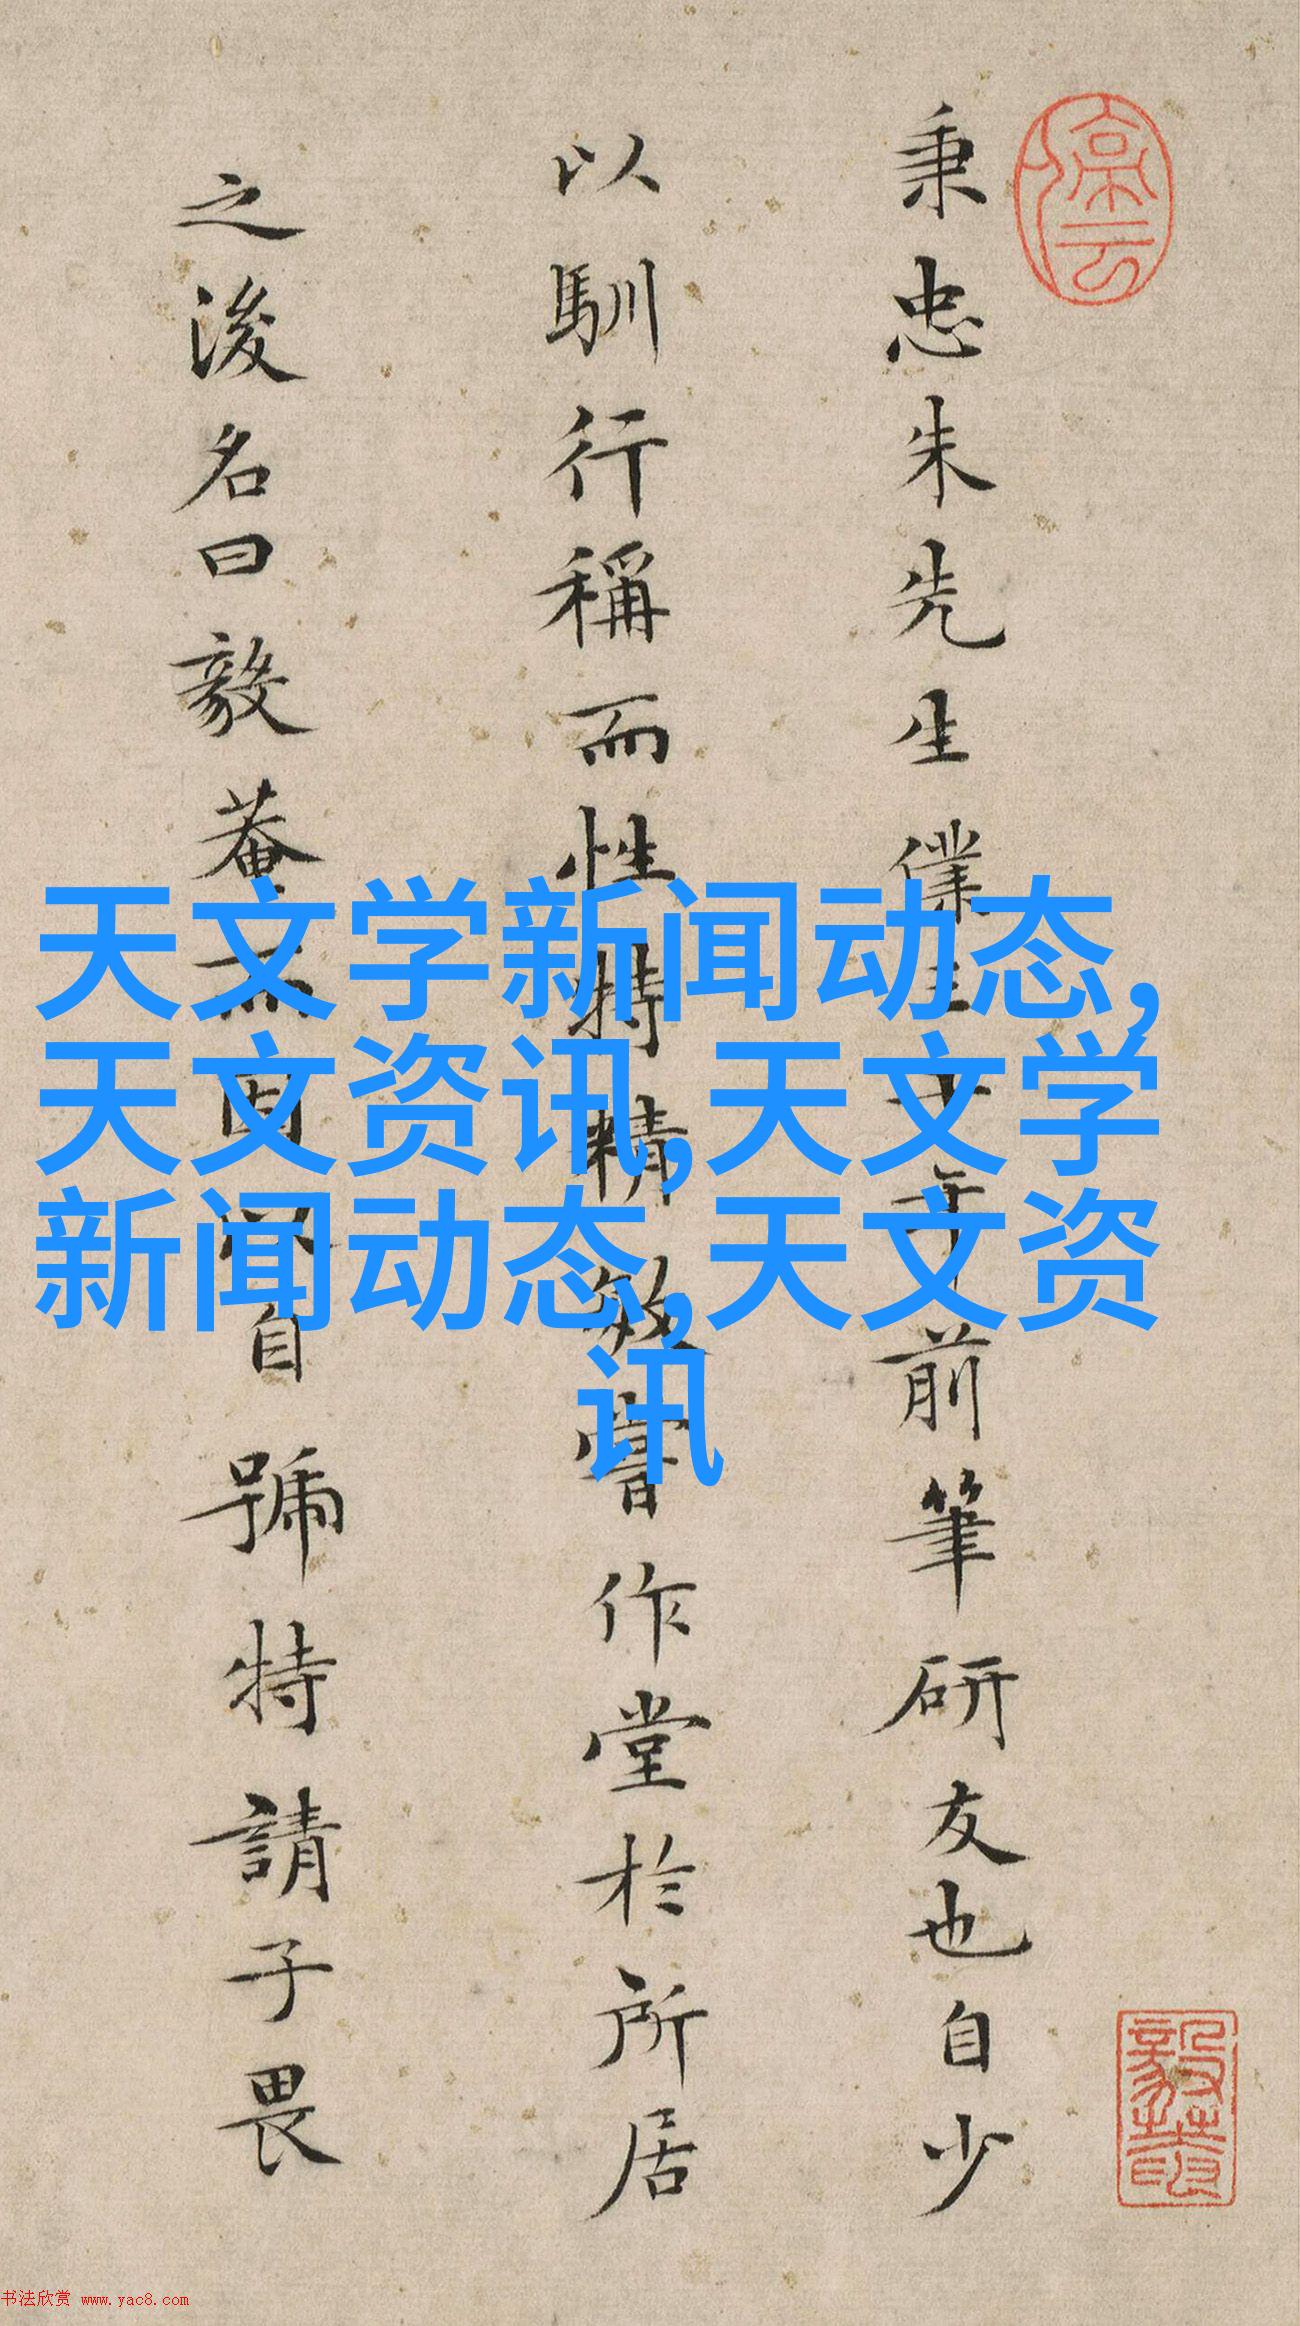 秉忠朱先生僕三十年前筆研友也自少
以馴行稱而性特精敏嘗作堂於所居
之後名曰毅菴而因以自號特請子畏
天文学新闻动态,
天文资讯,天文学
新闻动态,天文资
讯
书法欣赏 www.yac8.com